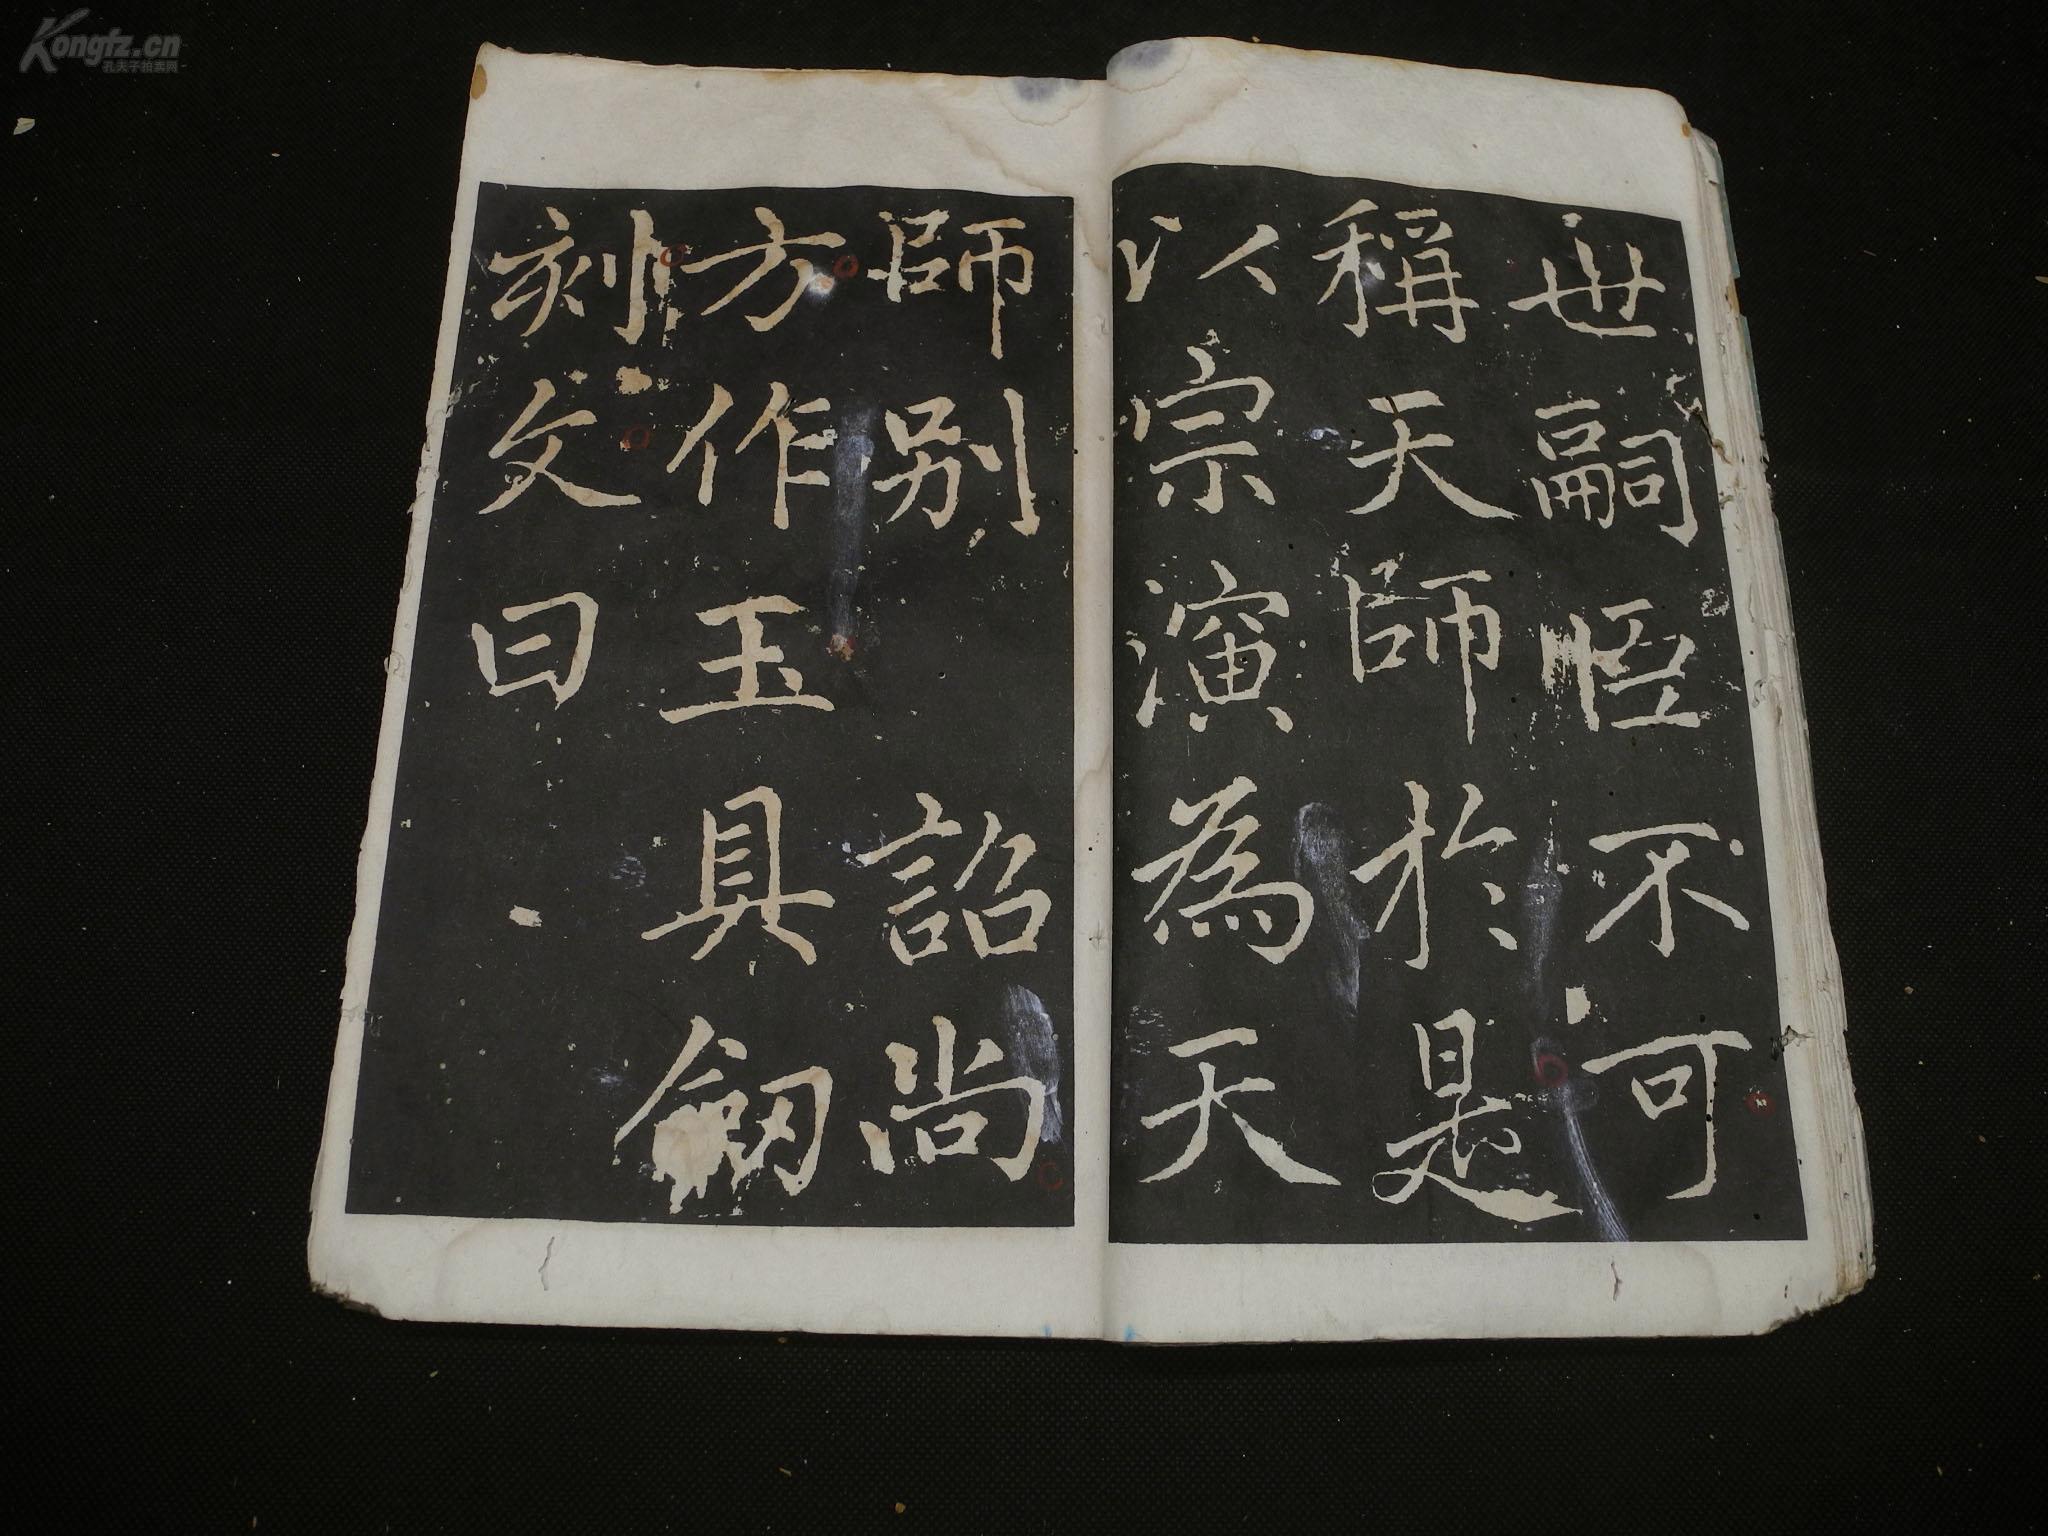 世嗣恆不可
稱天師於是
以宗演為天
師別　詔尚
方作玉具劒
刻文曰
Kongfz.cn
孔夫子拍卖网